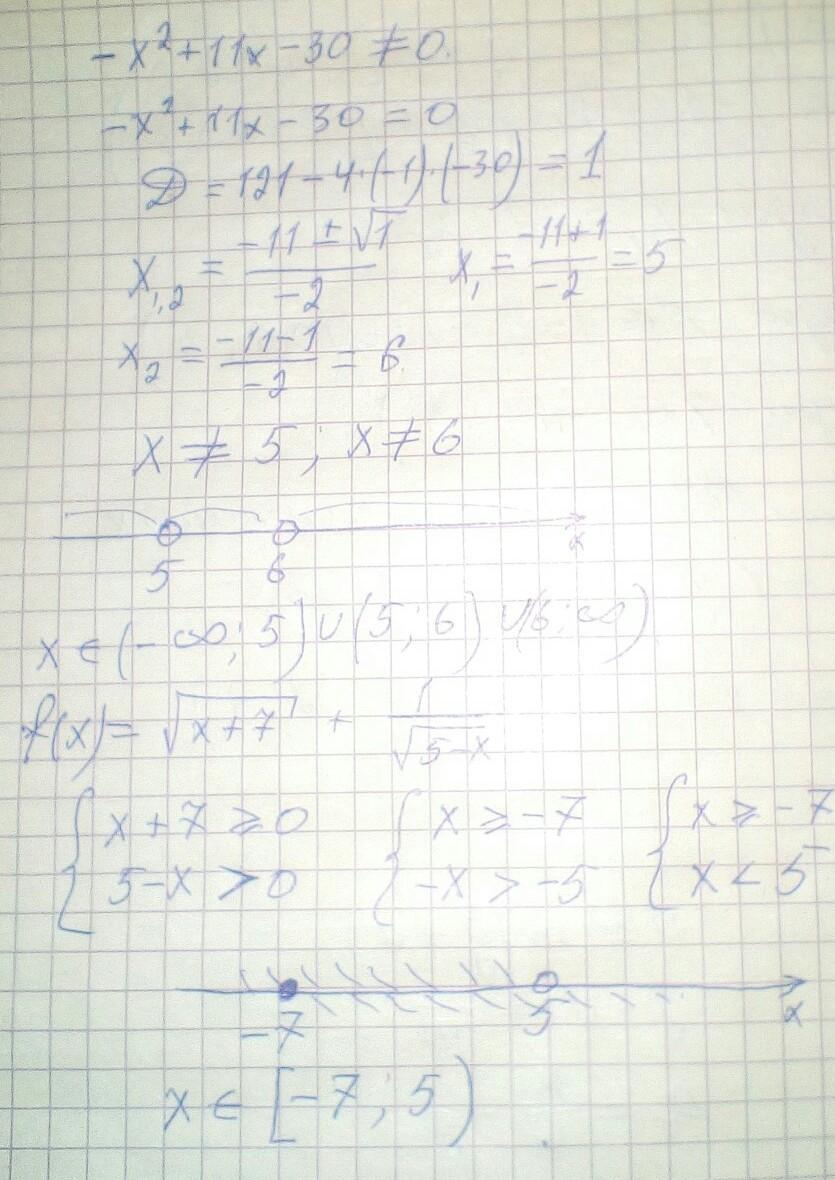 -x² + 11x - 30 ≠ 0.
-x² + 11x - 30 = 0
D = 121 - 4·(-1)·(-30) = 1
x₁,₂ = (-11 ± √1)/(-2)   x₁ = (-11+1)/(-2) = 5
x₂ = (-11-1)/(-2) = 6.
x ≠ 5 ; x ≠ 6
5 6 x
x ∈ (-∞; 5) ∪ (5; 6) ∪ (6; ∞)
f(x) = √(x+7) + 1/√(5-x)
{ x + 7 ⩾ 0   { x ⩾ -7   { x ⩾ -7
5 - x > 0   -x > -5   x < 5
-7 5 x
x ∈ [-7; 5)